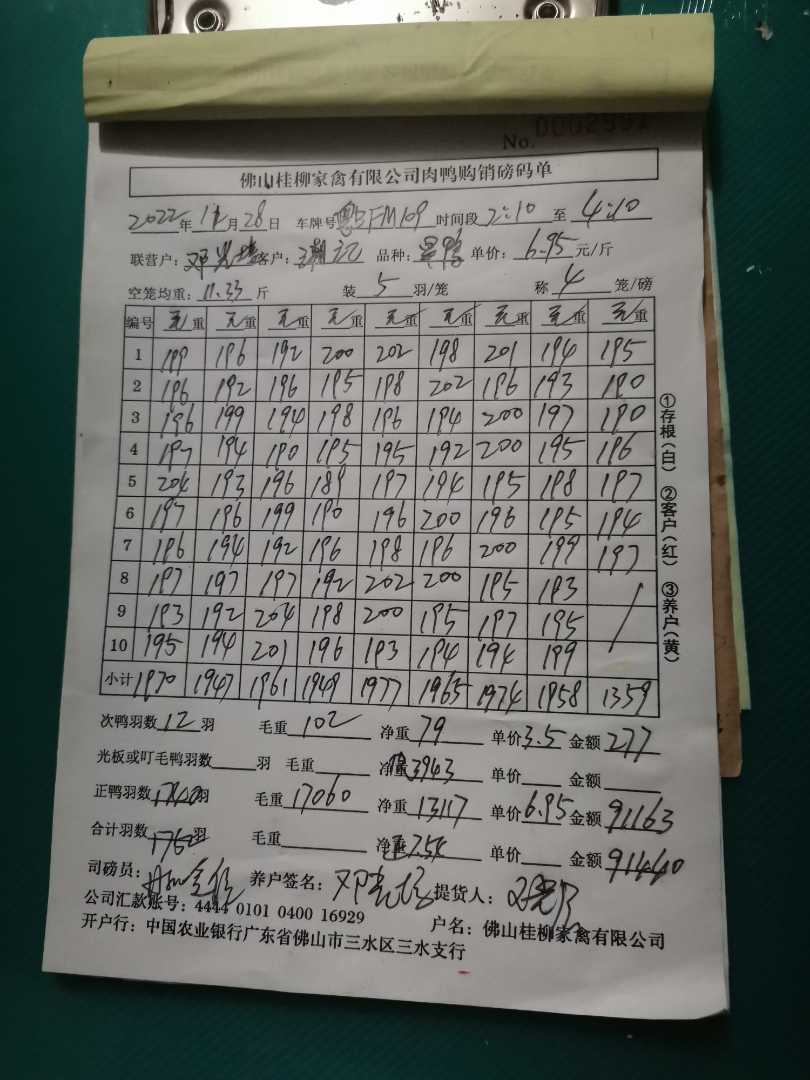 No. 0002991
佛山桂柳家禽有限公司肉鸭购销磅码单
2022年 12月 28日 车牌号 粤FM109 时间段 2:10 至 4:10
联营户: 客户: 记 品种: 鸭 单价: 6.95 元/斤
空笼均重: 11.33 斤 装 5 羽/笼 称 4 笼/磅
编号 毛重 毛重 毛重 毛重 毛重 毛重 毛重 毛重 毛重
1 199 196 192 200 202 198 201 194 195
2 196 192 196 195 198 202 196 193 190
3 196 199 194 198 196 194 200 197 190
4 197 194 190 195 195 192 200 195 196
5 204 193 196 189 197 194 195 198 197
6 197 196 199 190 196 200 196 195 194
7 196 194 192 196 198 196 200 199 197
8 197 197 197 192 202 200 195 193
9 193 192 204 198 200 195 197 195
10 195 194 201 196 193 194 194 199
小计 1970 1947 1961 1949 1977 1965 1974 1958 1359
次鸭羽数 12 羽 毛重 102 净重 79 单价 3.5 金额 277
光板或叮毛鸭羽数 羽 毛重 净重 3943 单价 金额
正鸭羽数 羽 毛重 17060 净重 13117 单价 6.95 金额 91163
合计羽数 羽 毛重 净重 7.54 单价 金额 91440
司磅员: 养户签名: 邓 提货人:
公司汇款账号: 4444 0101 0400 16929 户名: 佛山桂柳家禽有限公司
开户行: 中国农业银行广东省佛山市三水区三水支行
①存根(白) ②客户(红) ③养户(黄)